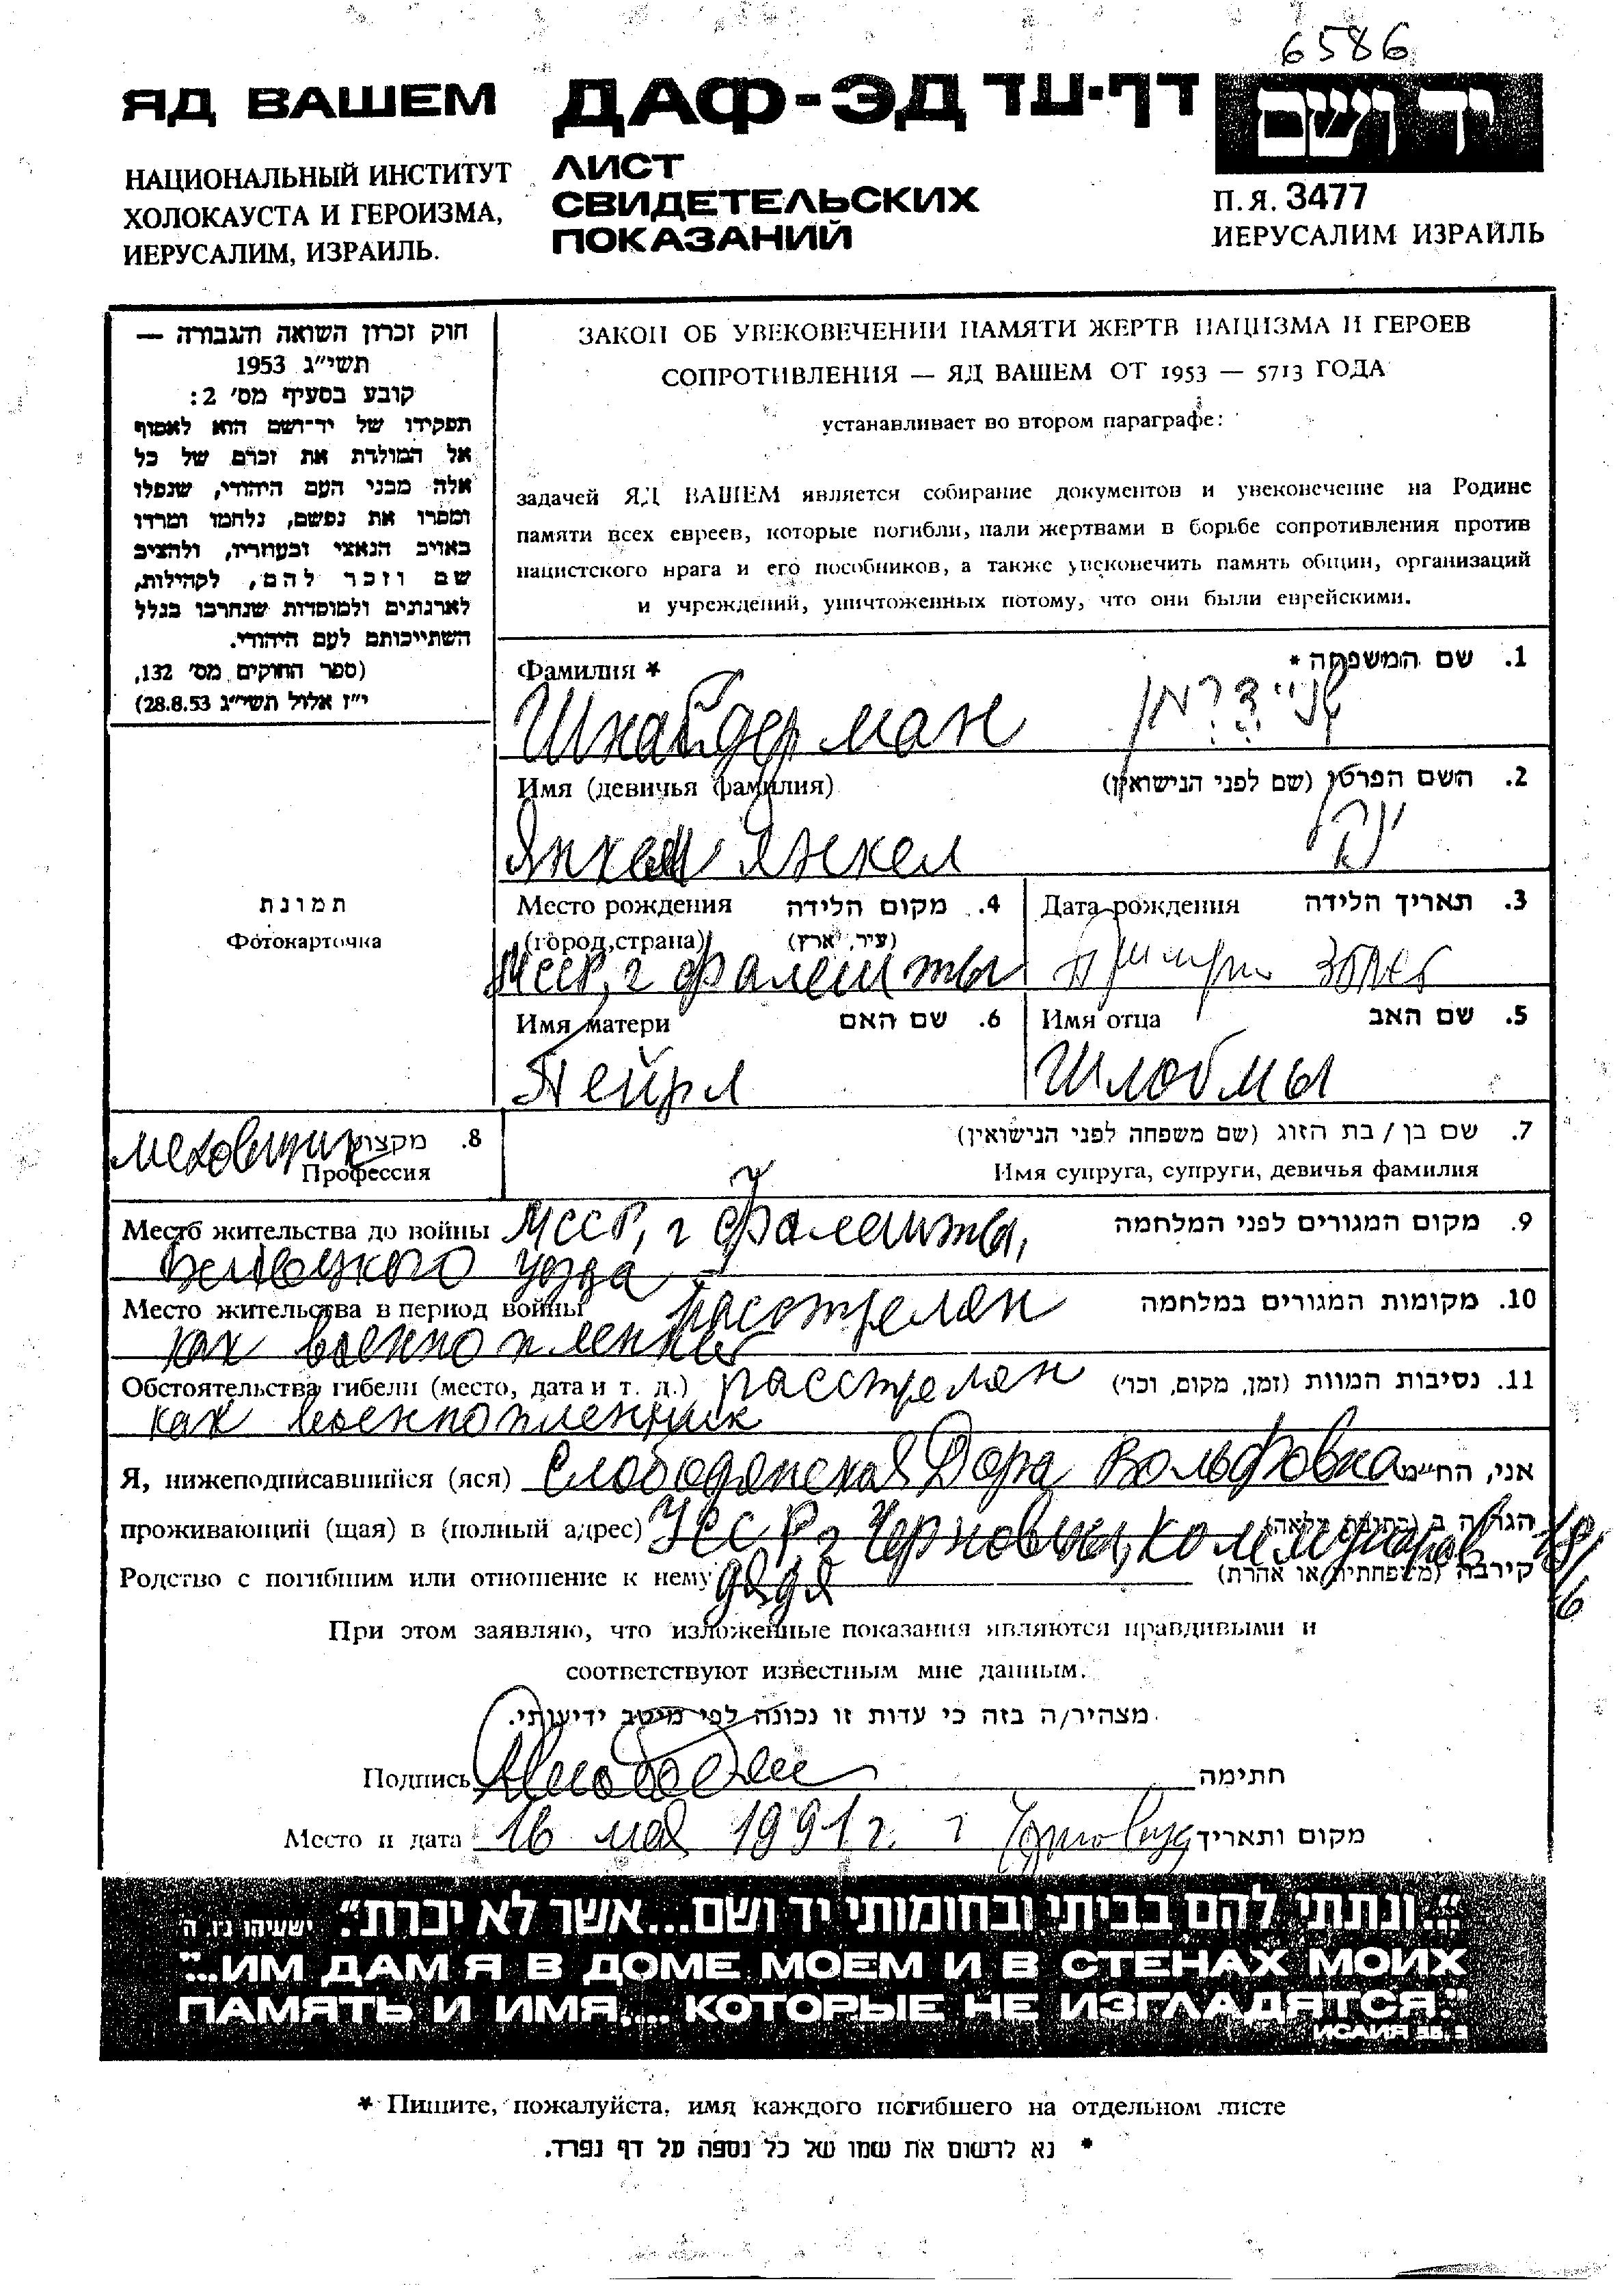 6586
ЯД ВАШЕМ ДАФ-ЭД דף-עד יד ושם
НАЦИОНАЛЬНЫЙ ИНСТИТУТ
ХОЛОКАУСТА И ГЕРОИЗМА,
ИЕРУСАЛИМ, ИЗРАИЛЬ.
ЛИСТ
СВИДЕТЕЛЬСКИХ
ПОКАЗАНИЙ
П.Я. 3477
ИЕРУСАЛИМ ИЗРАИЛЬ
חוק זכרון השואה והגבורה —
תשי״ג 1953
קובע בסעיף מס׳ 2:
תפקידו של יד־ושם הוא לאסוף
אל המולדת את זכרם של כל
אלה מבני העם היהודי, שנפלו
ומסרו את נפשם, נלחמו ומרדו
באויב הנאצי ובעוזריו, ולהציב
שם וזכר להם, לקהילות,
לארגונים ולמוסדות שנחרבו בגלל
השתייכותם לעם היהודי.
(ספר החוקים מס׳ 132,
י״ז אלול תשי״ג 28.8.53)
ЗАКОН ОБ УВЕКОВЕЧЕНИИ ПАМЯТИ ЖЕРТВ НАЦИЗМА И ГЕРОЕВ
СОПРОТИВЛЕНИЯ — ЯД ВАШЕМ ОТ 1953 — 5713 ГОДА
устанавливает во втором параграфе:
задачей ЯД ВАШЕМ является собирание документов и увековечение на Родине
памяти всех евреев, которые погибли, пали жертвами в борьбе сопротивления против
нацистского врага и его пособников, а также увековечить память общин, организаций
и учреждений, уничтоженных потому, что они были еврейскими.
Фамилия * 1. שם המשפחה *
Шнайдерман שניידרמן
Имя (девичья фамилия) 2. השם הפרטי (שם לפני הנישואין)
Янкел Янкел יעקב
Место рождения 4. מקום הלידה Дата рождения 3. תאריך הלידה
(город,страна) (עיר, ארץ)
МССР, г Фалешты Пример 30 лет
Имя матери 6. שם האם Имя отца 5. שם האב
Пейрл Шлоймы
תמונת
Фотокарточка
меховщик 8. מקצוע
Профессия
7. שם בן / בת הזוג (שם משפחה לפני הנישואין)
Имя супруга, супруги, девичья фамилия
Место жительства до войны МССР, г Фалешты, 9. מקום המגורים לפני המלחמה
Белецкого уезда
Место жительства в период войны расстрелян 10. מקומות המגורים במלחמה
как военнопленный
Обстоятельства гибели (место, дата и т. д.) расстрелян 11. נסיבות המוות (זמן, מקום, וכו׳)
как военнопленник
Я, нижеподписавшийся (яся) Слободянская Дора Вольфовна אני, הח״מ
проживающий (щая) в (полный адрес) УССР г Черновцы, הגר/ה ב (כתובת מלאה) 18/6
Родство с погибшим или отношение к нему дядя קירבה (משפחתית או אחרת)
При этом заявляю, что изложенные показания являются правдивыми и
соответствуют известным мне данным.
מצהיר/ה בזה כי עדות זו נכונה לפי מיטב ידיעותי.
Подпись חתימה
Место и дата 16 мая 1991 г. г Черновцы מקום ותאריך
״...ונתתי להם בביתי ובחומותי יד ושם...אשר לא יכרת״. ישעיהו נ״ו, ה
"...ИМ ДАМ Я В ДОМЕ МОЕМ И В СТЕНАХ МОИХ
ПАМЯТЬ И ИМЯ.... КОТОРЫЕ НЕ ИЗГЛАДЯТСЯ."
ИСАИЯ
* Пишите, пожалуйста, имя каждого погибшего на отдельном листе
* נא לרשום את שמו של כל נספה על דף נפרד.